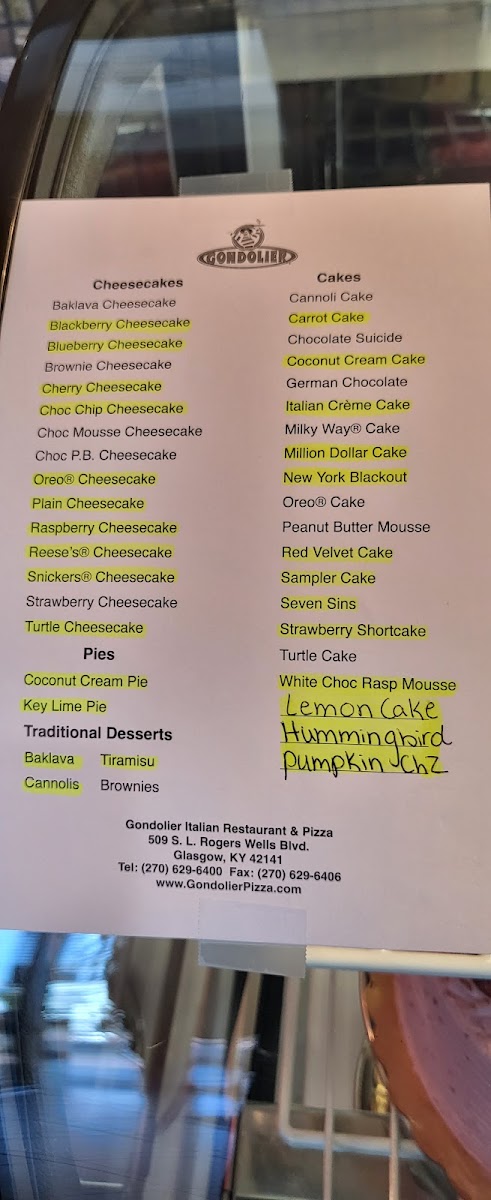 GONDOLIER
Cheesecakes
Baklava Cheesecake
Blackberry Cheesecake
Blueberry Cheesecake
Brownie Cheesecake
Cherry Cheesecake
Choc Chip Cheesecake
Choc Mousse Cheesecake
Choc P.B. Cheesecake
Oreo® Cheesecake
Plain Cheesecake
Raspberry Cheesecake
Reese's® Cheesecake
Snickers® Cheesecake
Strawberry Cheesecake
Turtle Cheesecake
Pies
Coconut Cream Pie
Key Lime Pie
Traditional Desserts
Baklava Tiramisu
Cannolis Brownies
Cakes
Cannoli Cake
Carrot Cake
Chocolate Suicide
Coconut Cream Cake
German Chocolate
Italian Crème Cake
Milky Way® Cake
Million Dollar Cake
New York Blackout
Oreo® Cake
Peanut Butter Mousse
Red Velvet Cake
Sampler Cake
Seven Sins
Strawberry Shortcake
Turtle Cake
White Choc Rasp Mousse
Lemon Cake
Hummingbird
Pumpkin ChZ
Gondolier Italian Restaurant & Pizza
509 S. L. Rogers Wells Blvd.
Glasgow, KY 42141
Tel: (270) 629-6400 Fax: (270) 629-6406
www.GondolierPizza.com